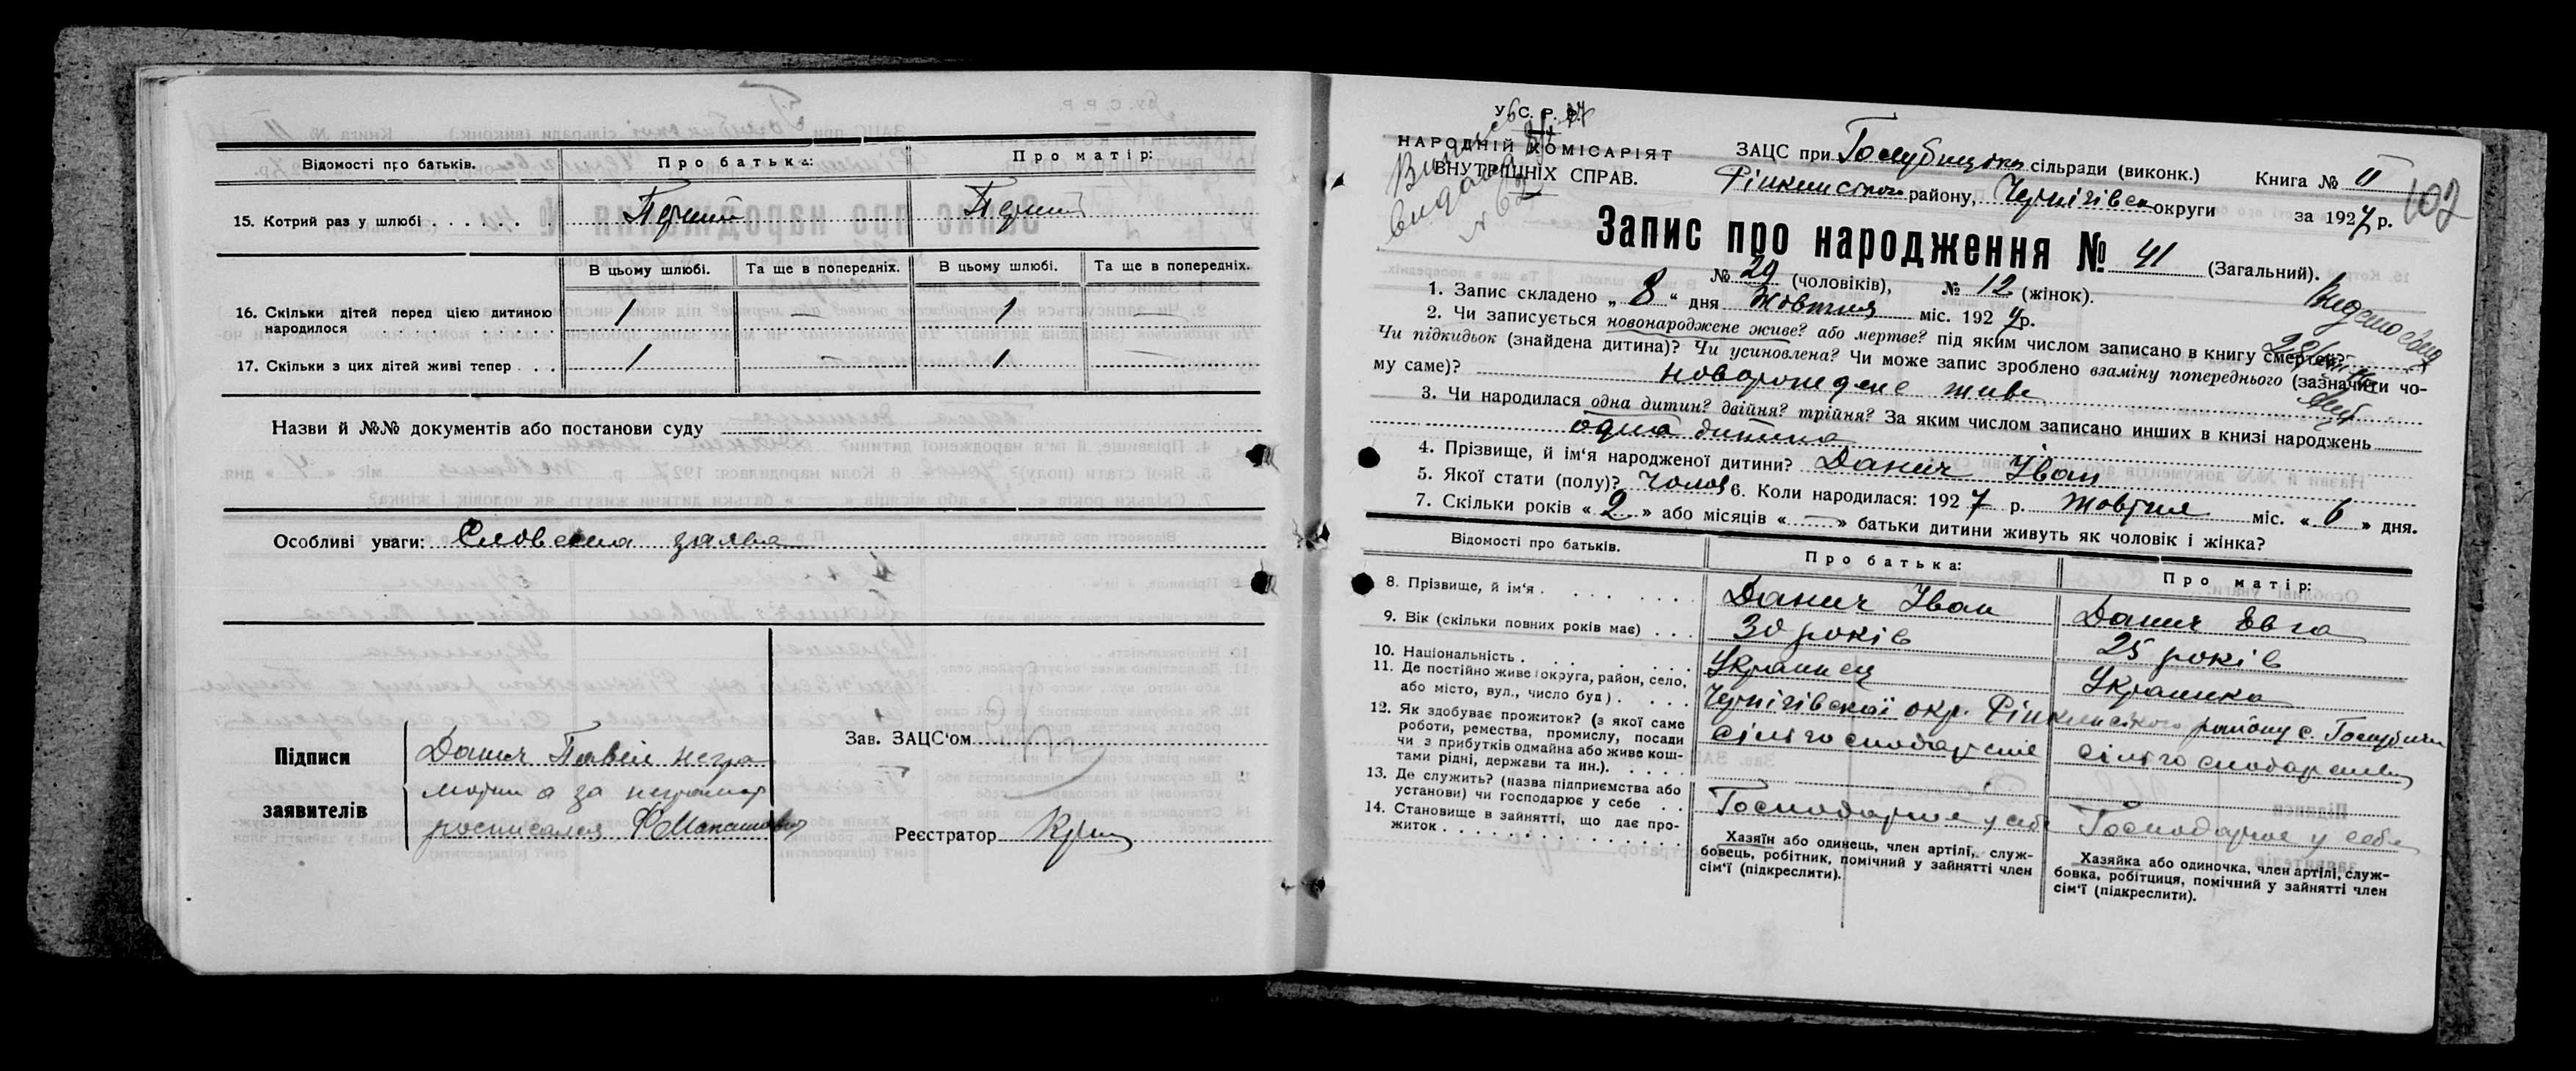 Відомості про батьків. Про батька: Про матір:
15. Котрий раз у шлюбі . . . . . . Перший Перший
В цьому шлюбі. Та ще в попередніх. В цьому шлюбі. Та ще в попередніх.
16. Скільки дітей перед цією дитиною
народилося . . . . . . . . . . . 1 — 1 —
17. Скільки з цих дітей живі тепер . . . 1 — 1 —
Назви й №№ документів або постанови суду
Особливі уваги: Словесна заява
Підписи
заявителів
Данич Павел негра
мотни а за неграмот
росписался
Зав. ЗАЦС'ом
Реєстратор
У. С. Р. Р.
НАРОДНІЙ КОМІСАРІЯТ
ВНУТРІШНІХ СПРАВ.
ЗАЦС при Голубицькій сільради (виконк.) Книга № II
Ріпкинського району, Чернігівськ округи за 1927 р.
102
Запис про народження № 41 (Загальний).
№ 29 (чоловіків), № 12 (жінок).
1. Запис складено „ 8 “ дня Жовтня міс. 1927 р.
2. Чи записується новонароджене живе? або мертве? під яким числом записано в книгу смертей?
Чи підкидьок (знайдена дитина)? Чи усиновлена? Чи може запис зроблено взаміну попереднього (зазначити чо-
му саме)? новорожденé живе
3. Чи народилася одна дитин? двійня? трійня? За яким числом записано инших в книзі народжень
одна дитина
4. Прізвище, й ім'я народженої дитини? Данич Іван
5. Якої стати (полу)? Чолов 6. Коли народилася: 1927 р. Жовтня міс. « 6 » дня.
7. Скільки років « 2 » або місяців « — » батьки дитини живуть як чоловік і жінка?
Відомості про батьків. Про батька: Про матір:
8. Прізвище, й ім'я . . . . . . . Данич Іван Данич Евга
9. Вік (скільки повних років має) . . . 30 років 25 років
10. Національність . . . . . . . . Українец Украинка
11. Де постійно живе (округа, район, село,
або місто, вул., число буд) . . . . . Чернігівської окр. Ріпкинського району с. Голубичи
12. Як здобуває прожиток? (з якої саме
роботи, ремества, промислу, посади
чи з прибутків одмайна або живе кош-
тами рідні, держави та ин.). . . . . .
13. Де служить? (назва підприємства або
установи) чи господарює у себе . . Господарює у себе Господарює у себе
14. Становище в зайнятті, що дає про-
житок . . . . . . . . . . . . .
Хазяїн або одинець, член артілі, служ-
бовець, робітник, помічний у зайнятті член
сім'ї (підкреслити).
Хазяйка або одиночка, член артілі, служ-
бовка, робітциця, помічний у зайнятті член
сім'ї (підкреслити).